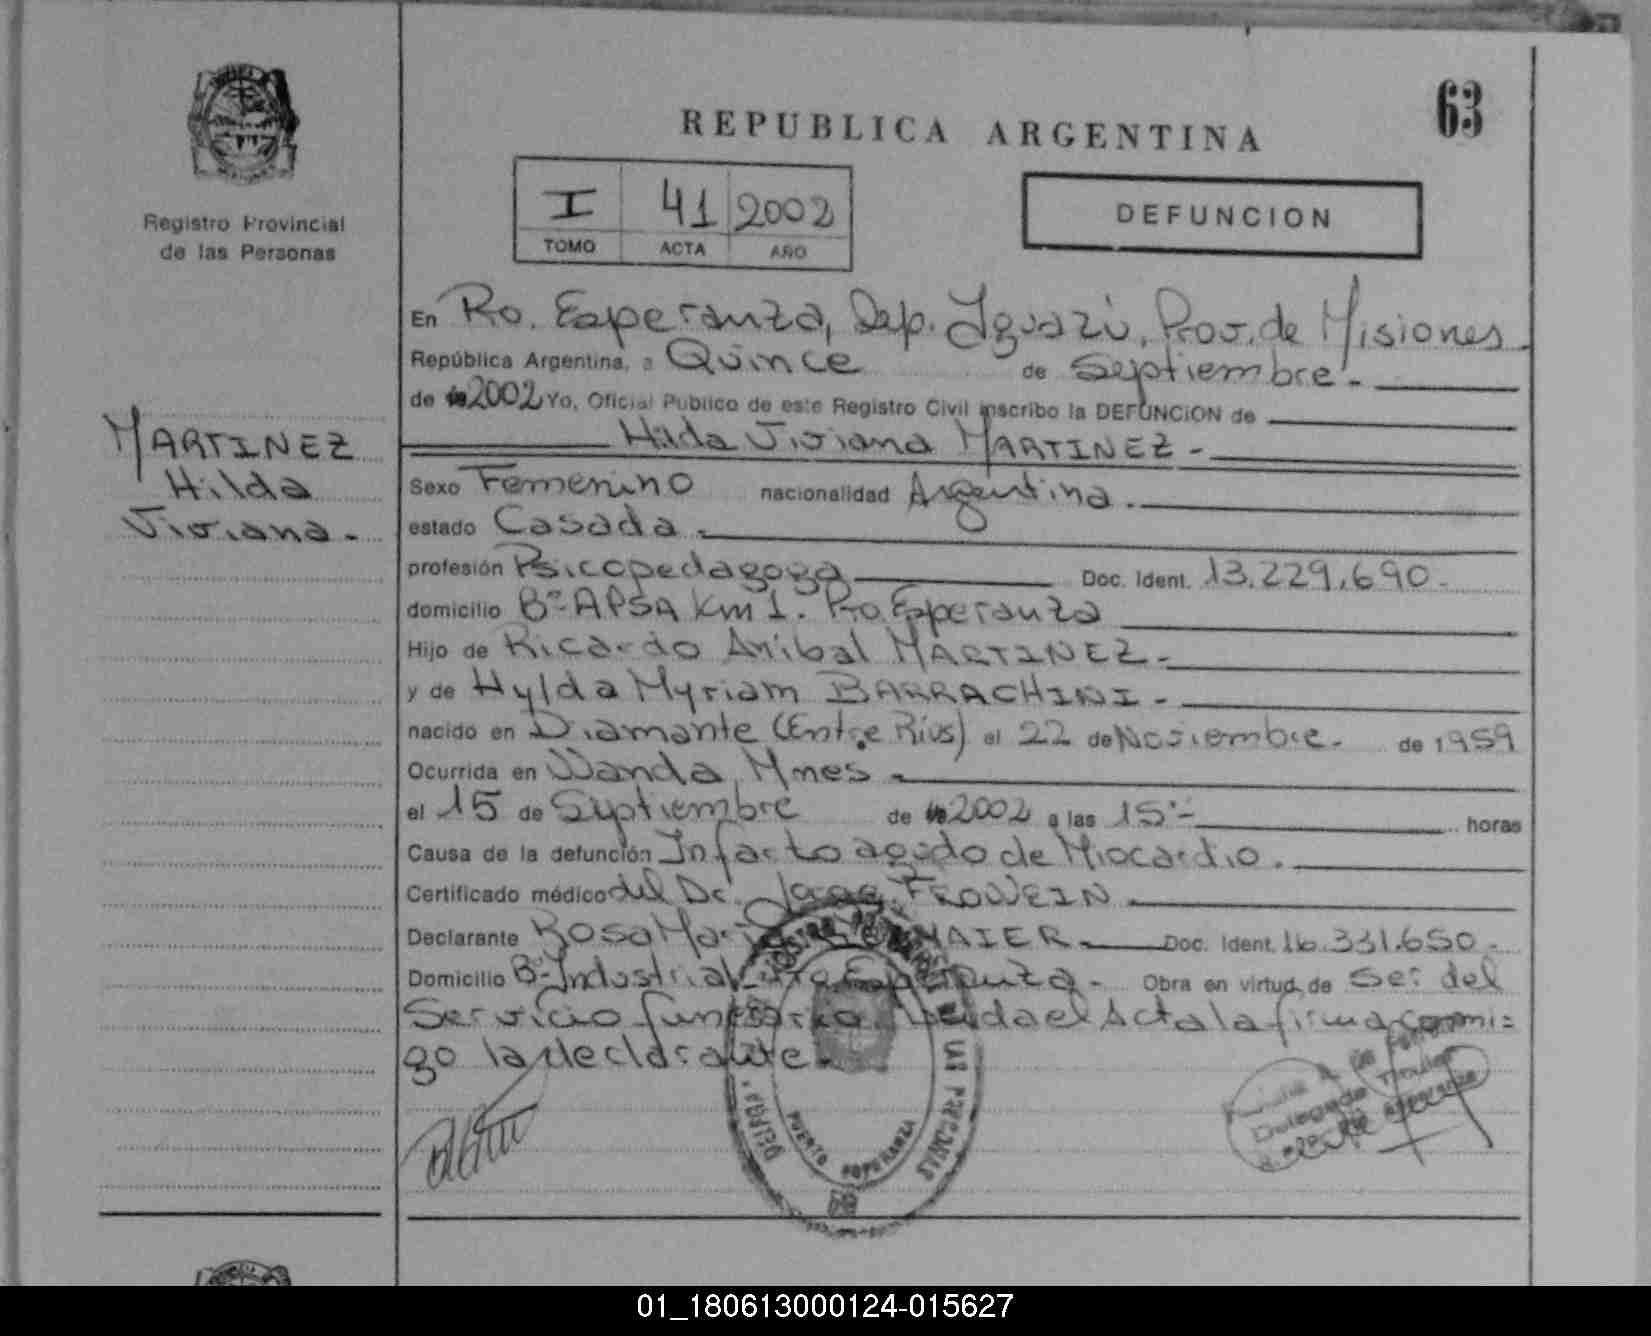 63
REPUBLICA ARGENTINA
I 41 2002
TOMO ACTA AÑO
DEFUNCION
Registro Provincial
de las Personas
MARTINEZ
Hilda
Viviana.-
En Pto. Esperanza, Dep. Iguazú, Prov. de Misiones
República Argentina, a Quince de Septiembre.-
de 2002 Yo, Oficial Público de este Registro Civil inscribo la DEFUNCION de
Hilda Viviana MARTINEZ.-
Sexo Femenino nacionalidad Argentina.
estado Casada.
profesión Psicopedagoga Doc. Ident. 13.229.690.-
domicilio Bº APSA Km 1. Pto. Esperanza
Hijo de Ricardo Anibal MARTINEZ.-
y de Hylda Myriam BARRACHINI.-
nacido en Diamante (Entre Ríos) el 22 de Noviembre. de 1959
Ocurrida en Wanda, Mnes.
el 15 de Septiembre de 2002 a las 15 horas
Causa de la defunción Infarto agudo de Miocardio.
Certificado médico del Dr. Jorge FROWEIN
Declarante Rosa Doc. Ident. 16.331.650.-
Domicilio Bº Industrial Pto. Esperanza.- Obra en virtud de Ser del
Servicio funerario. Leida el Acta la firma conmi=
go la declarante.
LAS PERSONAS
PUERTO ESPERANZA
Delegada Titular
01_180613000124-015627